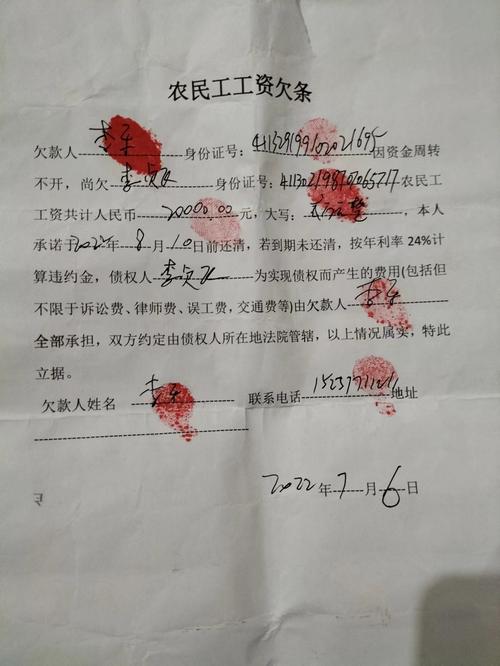 农民工工资欠条
欠款人 李军 身份证号: 411329199102021695 因资金周转
不开，尚欠 李 身份证号: 农民工
工资共计人民币 20000.00 元，大写: 整，本人
承诺于2022年8月10日前还清，若到期未还清，按年利率 24%计
算违约金，债权人 李 为实现债权而产生的费用(包括但
不限于诉讼费、律师费、误工费，交通费等)由欠款人
全部承担，双方约定由债权人所在地法院管辖，以上情况属实，特此
立据。
欠款人姓名 李 联系电话 地址
2022年7月6日